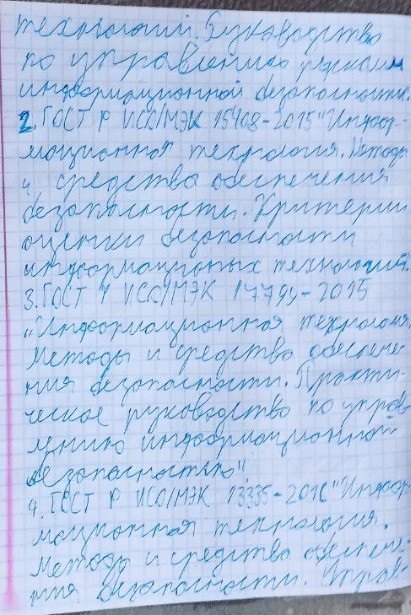 технологий. Руководство
по управлению рисками
информационной безопасности.
2. ГОСТ Р ИСО/МЭК 15408-2015 "Инфор-
мационная технология. Методы
и средства обеспечения
безопасности. Критерии
оценки безопасности
информационых технологий.
3. ГОСТ Р ИСО/МЭК 17799-2015
"Информационная технология
методы и средства обеспече-
ния безопасности. Практи-
ческое руководство по управ
лению информационной
безопасностью"
4. ГОСТ Р ИСО/МЭК 13335-2016 "Инфор
мационная технология.
Методы и средства обеспече-
ния безопасности. Управ-